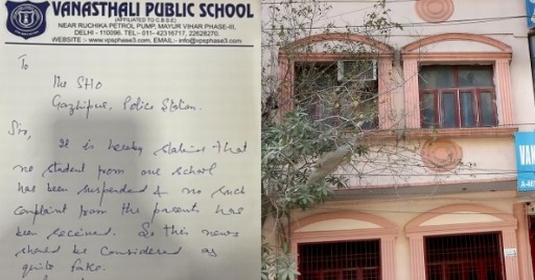 VANASTHALI PUBLIC SCHOOL
(AFFILIATED TO C.B.S.E)
NEAR RUCHIKA PETROL PUMP, MAYUR VIHAR PHASE-III,
DELHI - 110096. TEL- 011- 42316717, 22628270.
WEBSITE :- www.vpsphase3.com, EMAIL:- info@vpsphase3.com
To
The SHO
Gazhipur, Police Station.
Sir,
It is hereby stating that
no student from our school
has been suspended & no such
complaint from the parents has
been received. So this news
should be considered as
quite fake.
VAN